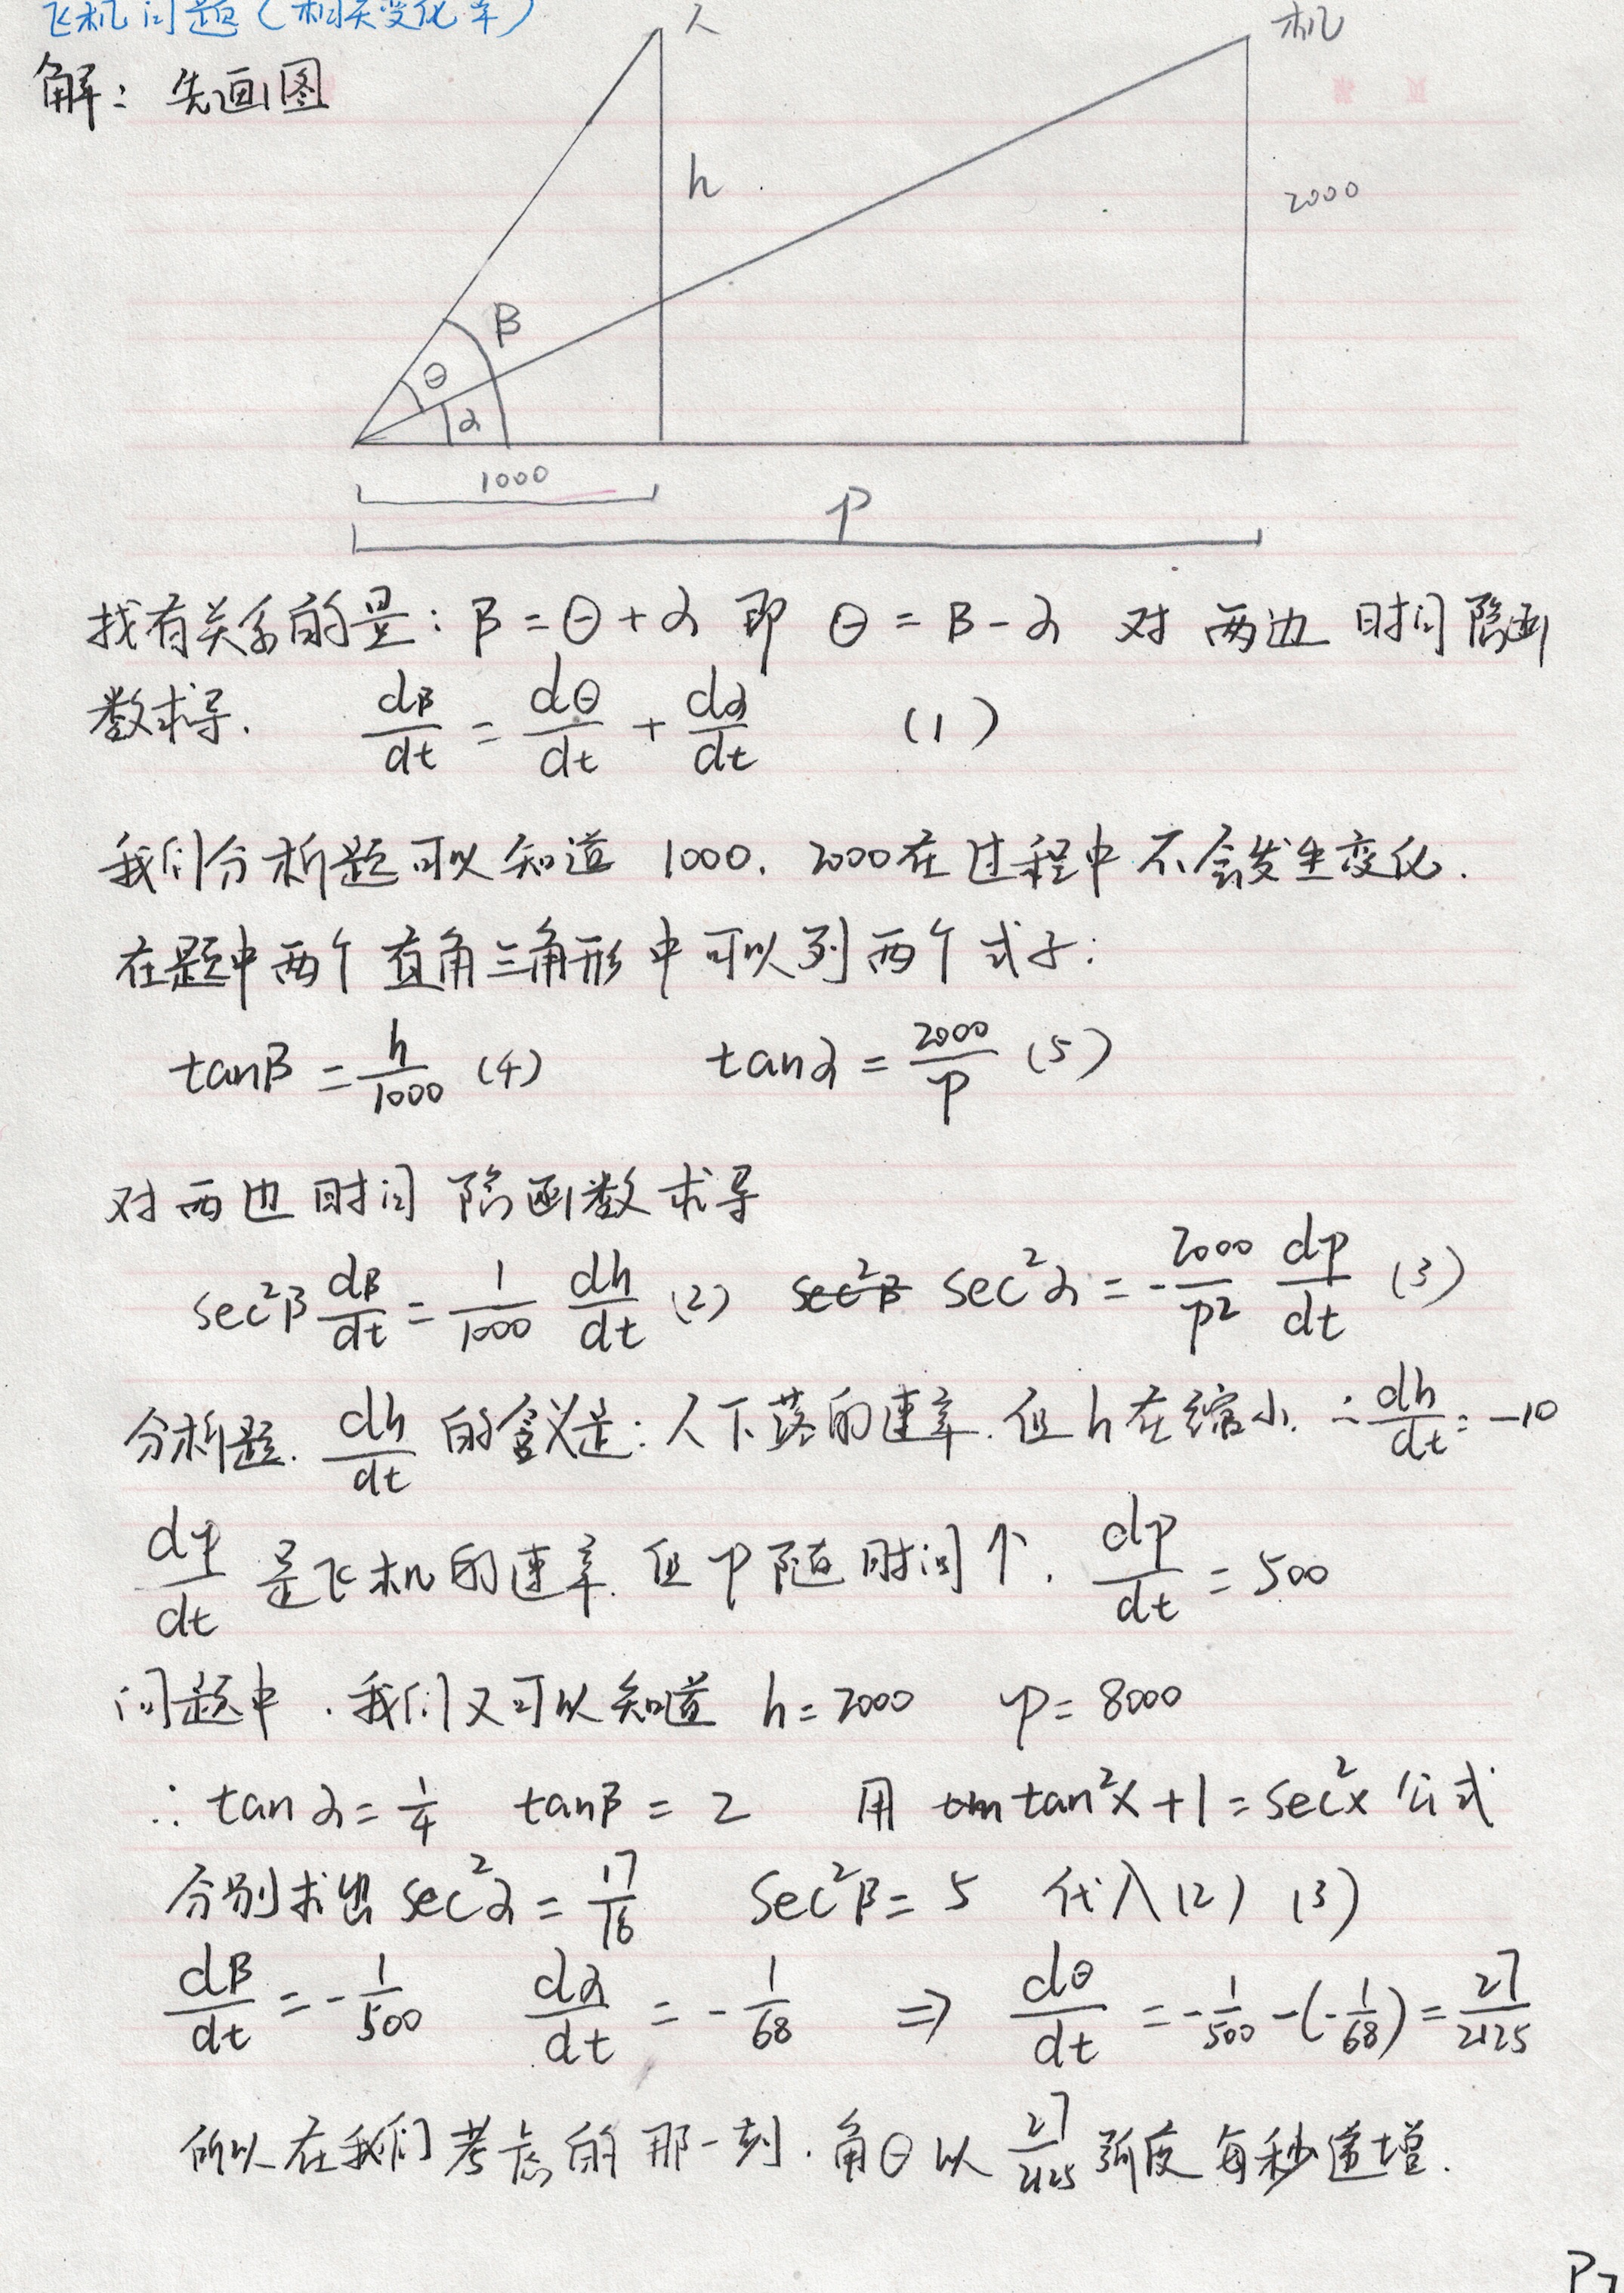 飞机问题(相关变化率)
解: 先画图
人
机
h
2000
β
θ
α
1000
P
找有关系的量: β = θ + α 即 θ = β - α 对两边时间隐函
数求导. dβ/dt = dθ/dt + dα/dt (1)
我们分析题可以知道 1000. 2000在过程中不会发生变化.
在题中两个直角三角形中可以列两个式子:
tanβ = h/1000 (4) tanα = 2000/P (5)
对两边时间隐函数求导
sec²β dβ/dt = 1/1000 dh/dt (2) sec²β sec²α = -2000/p² dp/dt (3)
分析题. dh/dt 的含义是: 人下落的速率. 但h在缩小. ∴ dh/dt = -10
dp/dt 是飞机的速率. 但P随时间↑. dp/dt = 500
问题中. 我们又可以知道 h = 2000 P = 8000
∴ tanα = 1/4 tanβ = 2 用 tan tan²x + 1 = sec²x 公式
分别求出 sec²α = 17/16 sec²β = 5 代入(2) (3)
dβ/dt = -1/500 dα/dt = -1/68 ⇒ dθ/dt = -1/500 - (-1/68) = 27/2125
所以在我们考虑的那一刻. 角θ以 27/2125 弧度每秒递增.